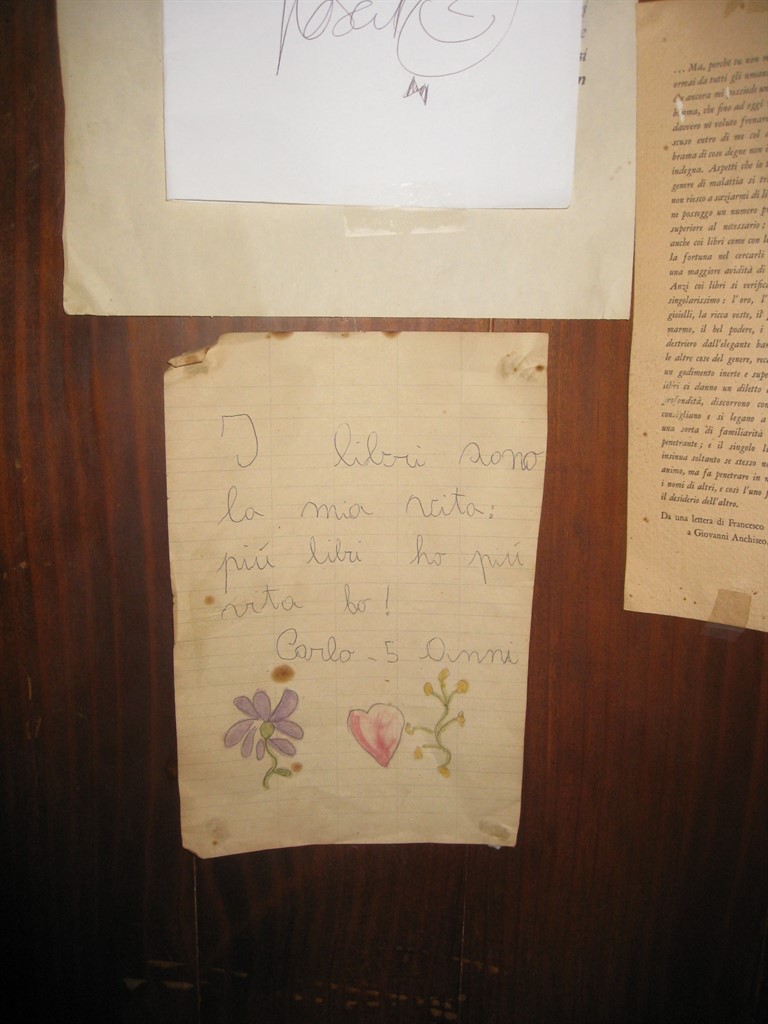 I libri sono
la mia vita:
piú libri ho piú
vita ho!
Carlo - 5 Anni
... Ma, perchè tu non
ormai da tutti gli
ancora mi possiede
brama, che fino ad oggi
davvero nè voluto frenare
scuso entro di me col
brama di cose degne non
indegna. Aspetti che io
genere di malattia si
non riesco a saziarmi di
ne posseggo un numero
superiore al necessario;
anche coi libri come con
la fortuna nel cercarli
una maggiore avidità di
Anzi coi libri si
singolarissimo: l'oro,
gioielli, la ricca veste, il
marmo, il bel podere, i
destriero dall'elegante
le altre cose del genere,
un godimento inerte e
libri ci danno un diletto
profondità, discorrono
consigliano e si legano a
una sorta di familiarità
penetrante; e il singolo
insinua soltanto se stesso
animo, ma fa penetrare in
i nomi di altri, e così l'uno
il desiderio dell'altro.
Da una lettera di Francesco
a Giovanni Anchiseo.